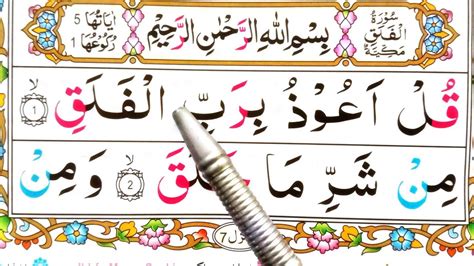 سُورَةُ الْفَلَقِ مَكِّيَّةٌ
بِسْمِ اللهِ الرَّحْمٰنِ الرَّحِيْمِ
اٰيَاتُهَا 5
رُكُوْعُهَا 1
قُلْ اَعُوْذُ بِرَبِّ الْفَلَقِ ۙ 1
مِنْ شَرِّ مَا خَلَقَ ۙ 2 وَمِنْ